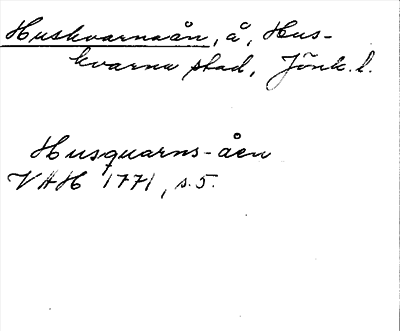 Huskvarnaån, å, Hus-
kvarna stad, Jönk. l.
Husquarns-åen
VAH 1771, s. 5.